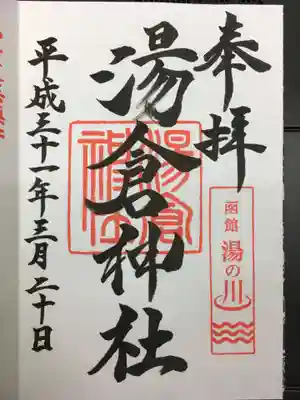 奉拝
函館
湯の川
湯倉神社
湯倉神社
平成三十一年三月二十日